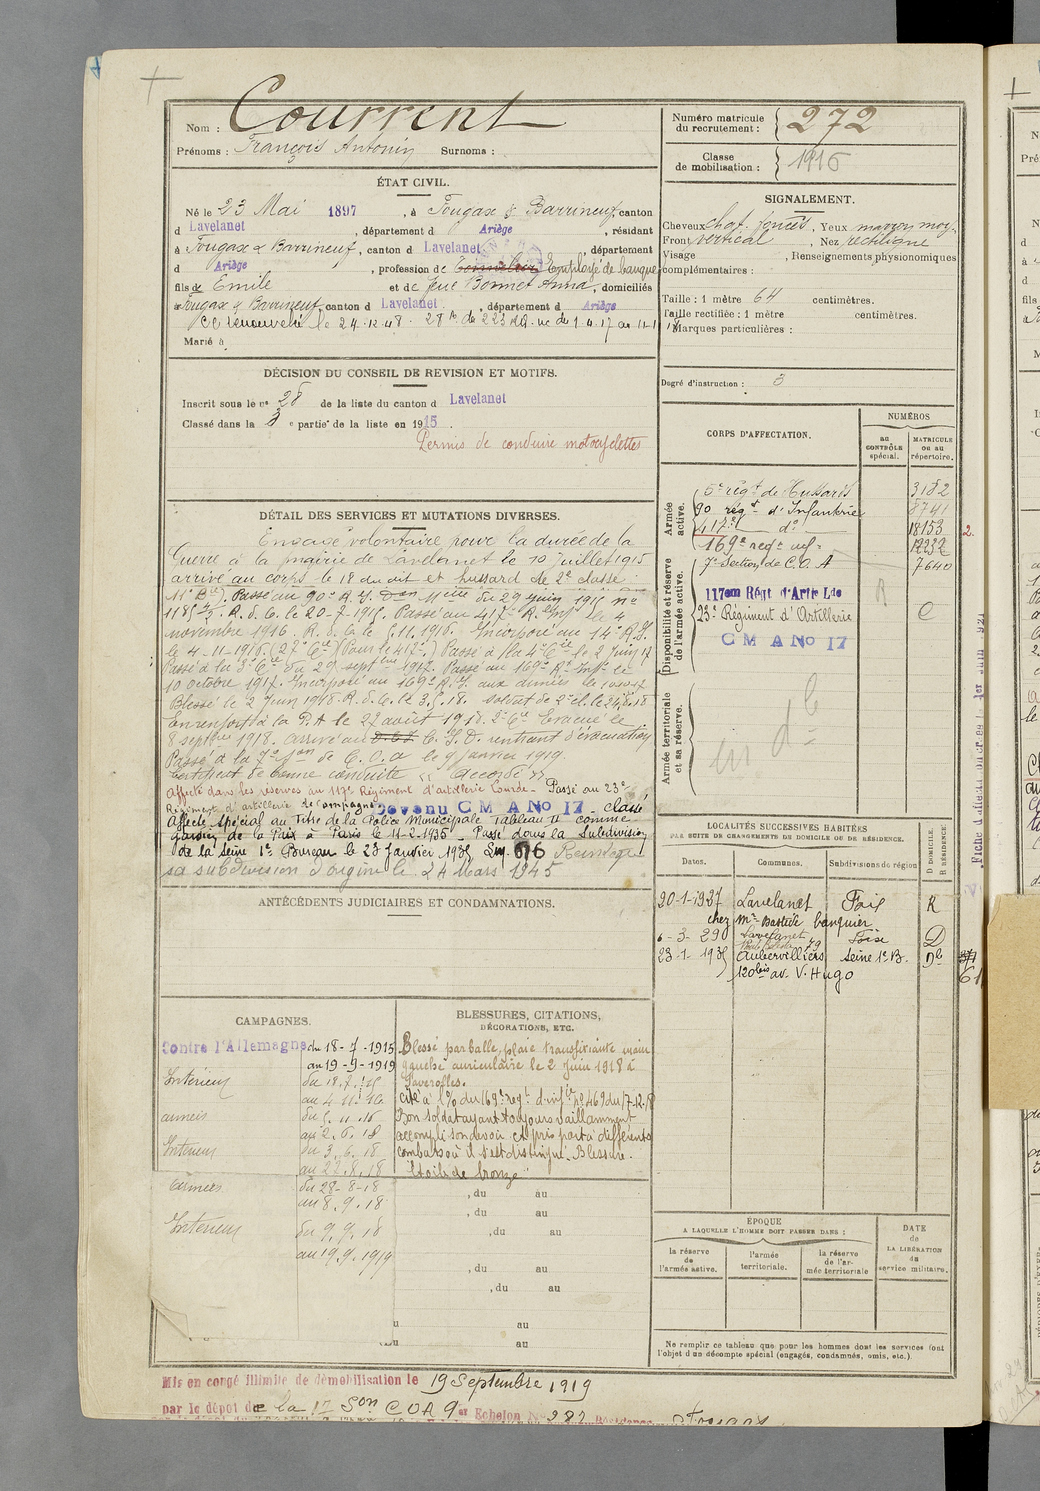 Nom : Courrent
Prénoms : François Antonin Surnoms :
Numéro matricule du recrutement : 272
Classe de mobilisation : 1916
ÉTAT CIVIL.
Né le 23 Mai 1897, à Fougax & Barrineuf, canton
d Lavelanet, département d Ariège, résidant
à Fougax & Barrineuf, canton d Lavelanet, département
d Ariège, profession de Employé de banque
fils de Emile et de feue Bonnet Anna, domiciliés
à Fougax & Barrineuf, canton d Lavelanet, département d Ariège
CC renouvelé le 24.12.48.
Marié à
SIGNALEMENT.
Cheveux chat. foncés, Yeux marron moy.
Front vertical, Nez rectiligne
Visage , Renseignements physionomiques
complémentaires :
Taille : 1 mètre 64 centimètres.
Taille rectifiée : 1 mètre centimètres.
Marques particulières :
Degré d'instruction : 3
DÉCISION DU CONSEIL DE REVISION ET MOTIFS.
Inscrit sous le n° 28 de la liste du canton d Lavelanet
Classé dans la 3 e partie de la liste en 1915.
Permis de conduire motocyclettes
DÉTAIL DES SERVICES ET MUTATIONS DIVERSES.
Engagé volontaire pour la durée de la
Guerre à la mairie de Lavelanet le 10 juillet 1915
arrivé au corps le 18 du dit et hussard de 2e classe
Passé au 90e R.I. 11eme du 29 juin 1915 no
R.d.C. le 20-7-1915. Passé au 417e R. Inf le 4
novembre 1916. R.d.C. le 5.11.1916. Incorporé au 14e R.I.
le 4-11-1916 (27e Cie) (Pour le 417e) Passé à la 4e Cie le 2 juin 17
Passé à la 3e Cie du 29 septbre 1917. Passé au 169e Rt Inf. le
10 octobre 1917. Incorporé au 169e R.I. aux armées le
Blessé le 2 juin 1918. R.d.C. le 3.6.18. soldat de 2e cl. le 24.8.18
En renfort à la D.A le 27 août 1918. Evacué le
8 septbre 1918. arrivé au C.I.D. rentrant d'évacuation
Passé à la 7e Son de C.O.a le 9 janvier 1919.
Certificat de bonne conduite "Accordé"
Affecté dans les réserves au 117e Régiment d'artillerie Lourde - Passé au 23e
Régiment d'artillerie de Campagne Devenu C M A No 17 - classé
Affecté Spécial au Titre de la Police Municipale Tableau II comme
gardien de la Paix à Paris le 11-2-1935 - Passé dans la Subdivision
de la Seine 1er Bureau le 23 Janvier 1935
sa subdivision d'origine le 24 Mars 1945
CORPS D'AFFECTATION.
NUMÉROS
au CONTRÔLE spécial.
MATRICULE OU AU répertoire.
Armée active.
5e régt de Hussards 3182
90 régt d'Infanterie 8741
417e do 18153
169e regt inf 12232
7e Section de C.O.A 7640
Disponibilité et réserve de l'armée active.
117em Régt d'Artie Lde
23e Régiment d'Artillerie
C M A No 17
Armée territoriale et sa réserve.
LOCALITÉS SUCCESSIVES HABITÉES
PAR SUITE DE CHANGEMENTS DE DOMICILE OU DE RÉSIDENCE.
Dates. Communes. Subdivisions de région D DOMICILE. R RÉSIDENCE.
20-1-1927 Lavelanet Foix R
chez Mr Bastide banquier
6-3-29 Lavelanet Foix D
23-1-1935 Aubervilliers Seine 1er B. Db
120bis av. V. Hugo
ANTÉCÉDENTS JUDICIAIRES ET CONDAMNATIONS.
CAMPAGNES.
Contre l'Allemagne du 18-7-1915
au 19-9-1919
Intérieur du 18.7.15
au 4.11.16
armées du 5.11.16
au 2.6.18
Intérieur du 3.6.18
au 27.8.18
Armées du 28-8-18
au 8.9.18
Intérieur du 9.9.18
au 19.9.1919
BLESSURES, CITATIONS,
DÉCORATIONS, ETC.
Blessé par balle, plaie transfixiante main
gauche auriculaire le 2 Juin 1918 à
Faverolles.
cité à l'o/ du 169e regt d'inf ie no 469 du 7-12-18
Bon soldat ayant toujours vaillamment
accompli son devoir et pris part à différents
combats où il s'est distingué. Blessure.
"Etoile de bronze"
, du au
, du au
, du au
, du au
, du au
au
au
ÉPOQUE
A LAQUELLE L'HOMME DOIT PASSER DANS :
la réserve de l'armée active.
l'armée territoriale.
la réserve de l'armée territoriale
DATE de LA LIBÉRATION du service militaire.
Ne remplir ce tableau que pour les hommes dont les services font
l'objet d'un décompte spécial (engagés, condamnés, omis, etc.).
Mis en congé illimité de démobilisation le 19 Septembre 1919
par le dépôt de la 17 Son COA 9e Echelon No 282